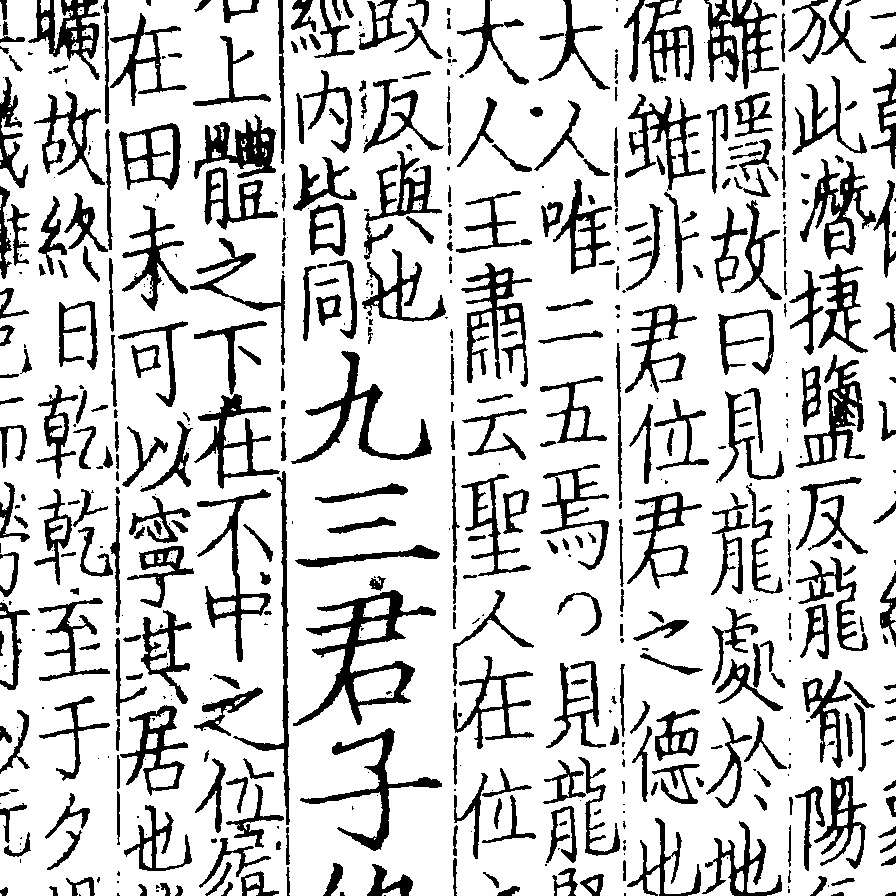 放此潛捷鹽反龍喻陽
離隱故曰見龍處於地
偏雖非君位君之德也
大人唯二五焉○見龍
大人王肅云聖人在位
政反與也
經内皆同
九三君子終
上體之下在不中之位履
在田未可以寧其居也
曠故終日乾乾至于夕